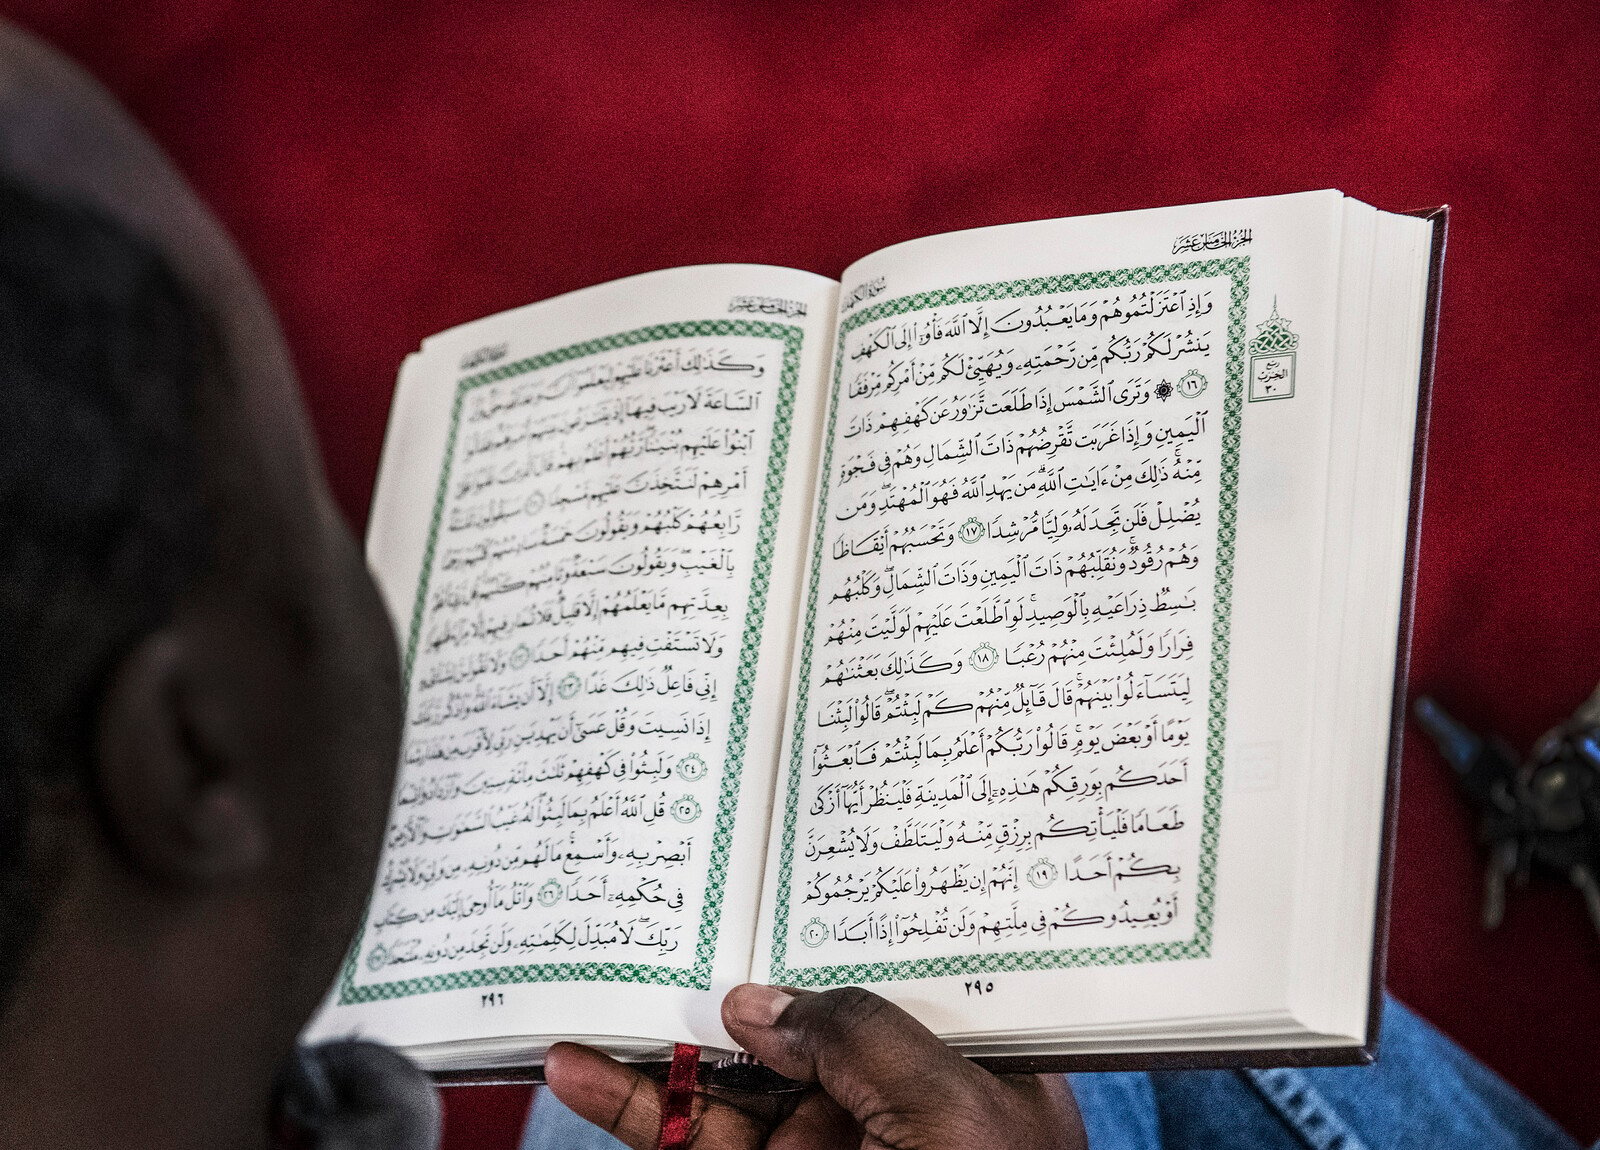 الجزء الخامس عشر
سورة الكهف
وَإِذِ ٱعۡتَزَلۡتُمُوهُمۡ وَمَا يَعۡبُدُونَ إِلَّا ٱللَّهَ فَأۡوُۥٓاْ إِلَى ٱلۡكَهۡفِ
يَنشُرۡ لَكُمۡ رَبُّكُم مِّن رَّحۡمَتِهِۦ وَيُهَيِّئۡ لَكُم مِّنۡ أَمۡرِكُم مِّرۡفَقٗا
١٦ ۞ وَتَرَى ٱلشَّمۡسَ إِذَا طَلَعَت تَّزَٰوَرُ عَن كَهۡفِهِمۡ ذَاتَ
ٱلۡيَمِينِ وَإِذَا غَرَبَت تَّقۡرِضُهُمۡ ذَاتَ ٱلشِّمَالِ وَهُمۡ فِي فَجۡوَةٖ
مِّنۡهُۚ ذَٰلِكَ مِنۡ ءَايَٰتِ ٱللَّهِۗ مَن يَهۡدِ ٱللَّهُ فَهُوَ ٱلۡمُهۡتَدِۖ وَمَن
يُضۡلِلۡ فَلَن تَجِدَ لَهُۥ وَلِيّٗا مُّرۡشِدٗا ١٧ وَتَحۡسَبُهُمۡ أَيۡقَاظٗا
وَهُمۡ رُقُودٞۚ وَنُقَلِّبُهُمۡ ذَاتَ ٱلۡيَمِينِ وَذَاتَ ٱلشِّمَالِۖ وَكَلۡبُهُم
بَٰسِطٞ ذِرَاعَيۡهِ بِٱلۡوَصِيدِۚ لَوِ ٱطَّلَعۡتَ عَلَيۡهِمۡ لَوَلَّيۡتَ مِنۡهُمۡ
فِرَارٗا وَلَمُلِئۡتَ مِنۡهُمۡ رُعۡبٗا ١٨ وَكَذَٰلِكَ بَعَثۡنَٰهُمۡ
لِيَتَسَآءَلُواْ بَيۡنَهُمۡۚ قَالَ قَآئِلٞ مِّنۡهُمۡ كَمۡ لَبِثۡتُمۡۖ قَالُواْ لَبِثۡنَا
يَوۡمًا أَوۡ بَعۡضَ يَوۡمٖۚ قَالُواْ رَبُّكُمۡ أَعۡلَمُ بِمَا لَبِثۡتُمۡ فَٱبۡعَثُوٓاْ
أَحَدَكُم بِوَرِقِكُمۡ هَٰذِهِۦٓ إِلَى ٱلۡمَدِينَةِ فَلۡيَنظُرۡ أَيُّهَآ أَزۡكَىٰ
طَعَامٗا فَلۡيَأۡتِكُم بِرِزۡقٖ مِّنۡهُ وَلۡيَتَلَطَّفۡ وَلَا يُشۡعِرَنَّ
بِكُمۡ أَحَدًا ١٩ إِنَّهُمۡ إِن يَظۡهَرُواْ عَلَيۡكُمۡ يَرۡجُمُوكُمۡ
أَوۡ يُعِيدُوكُمۡ فِي مِلَّتِهِمۡ وَلَن تُفۡلِحُوٓاْ إِذًا أَبَدٗا ٢٠
٢٩٥
ربع
الحزب
٣٠
الجزء الخامس عشر
وَكَذَٰلِكَ أَعۡثَرۡنَا عَلَيۡهِمۡ لِيَعۡلَمُوٓاْ
ٱلسَّاعَةَ لَا رَيۡبَ فِيهَآ إِذۡ
ٱبۡنُواْ عَلَيۡهِم بُنۡيَٰنٗاۖ رَّبُّهُمۡ أَعۡلَمُ بِهِمۡۚ قَالَ ٱلَّذِينَ
أَمۡرِهِمۡ لَنَتَّخِذَنَّ عَلَيۡهِم مَّسۡجِدٗا
رَّابِعُهُمۡ كَلۡبُهُمۡ وَيَقُولُونَ خَمۡسَةٞ
بِٱلۡغَيۡبِۖ وَيَقُولُونَ سَبۡعَةٞ
بِعِدَّتِهِم مَّا يَعۡلَمُهُمۡ إِلَّا قَلِيلٞۗ فَلَا تُمَارِ فِيهِمۡ
وَلَا تَسۡتَفۡتِ فِيهِم مِّنۡهُمۡ أَحَدٗا
إِنِّي فَاعِلٞ ذَٰلِكَ غَدًا ٢٣ إِلَّآ أَن يَشَآءَ ٱللَّهُۚ
إِذَا نَسِيتَ وَقُلۡ عَسَىٰٓ أَن يَهۡدِيَنِ رَبِّي
٢٤ وَلَبِثُواْ فِي كَهۡفِهِمۡ ثَلَٰثَ مِاْئَةٖ سِنِينَ
٢٥ قُلِ ٱللَّهُ أَعۡلَمُ بِمَا لَبِثُواْۖ لَهُۥ غَيۡبُ ٱلسَّمَٰوَٰتِ وَٱلۡأَرۡضِۖ
أَبۡصِرۡ بِهِۦ وَأَسۡمِعۡۚ مَا لَهُم مِّن دُونِهِۦ مِن وَلِيّٖ
فِي حُكۡمِهِۦٓ أَحَدٗا ٢٦ وَٱتۡلُ مَآ أُوحِيَ إِلَيۡكَ مِن كِتَابِ
رَبِّكَۖ لَا مُبَدِّلَ لِكَلِمَٰتِهِۦ وَلَن تَجِدَ مِن دُونِهِۦ
٢٩٦